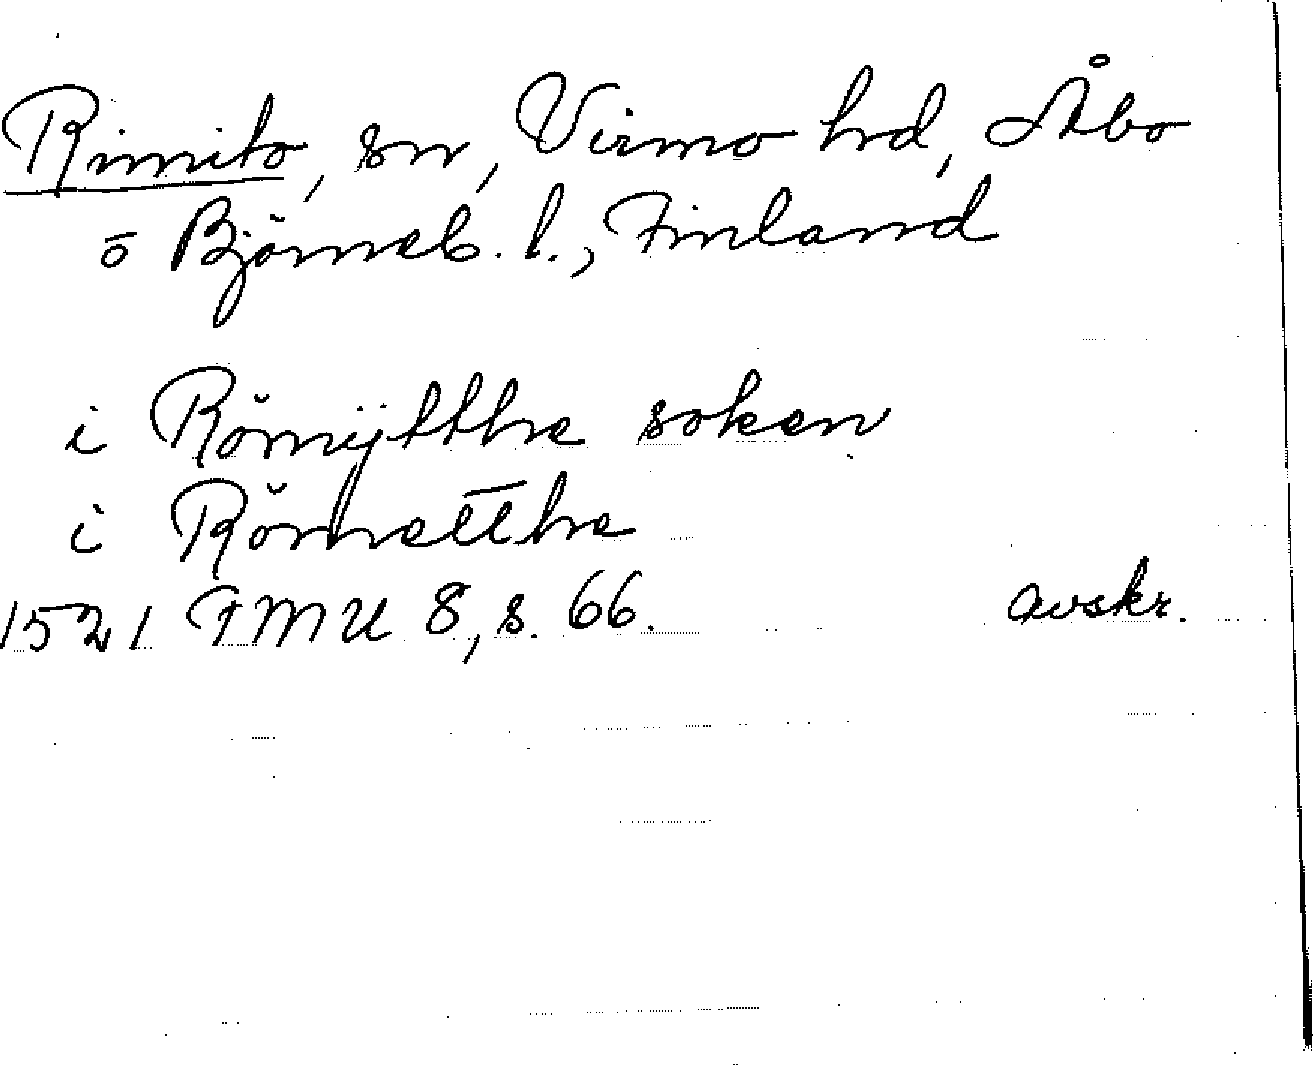 Rimito, sn, Virmo hd, Åbo
o Björneb. l., Finland
i Römÿttha soken
i Römettha
1521 FMU 8, s. 66. avskr.